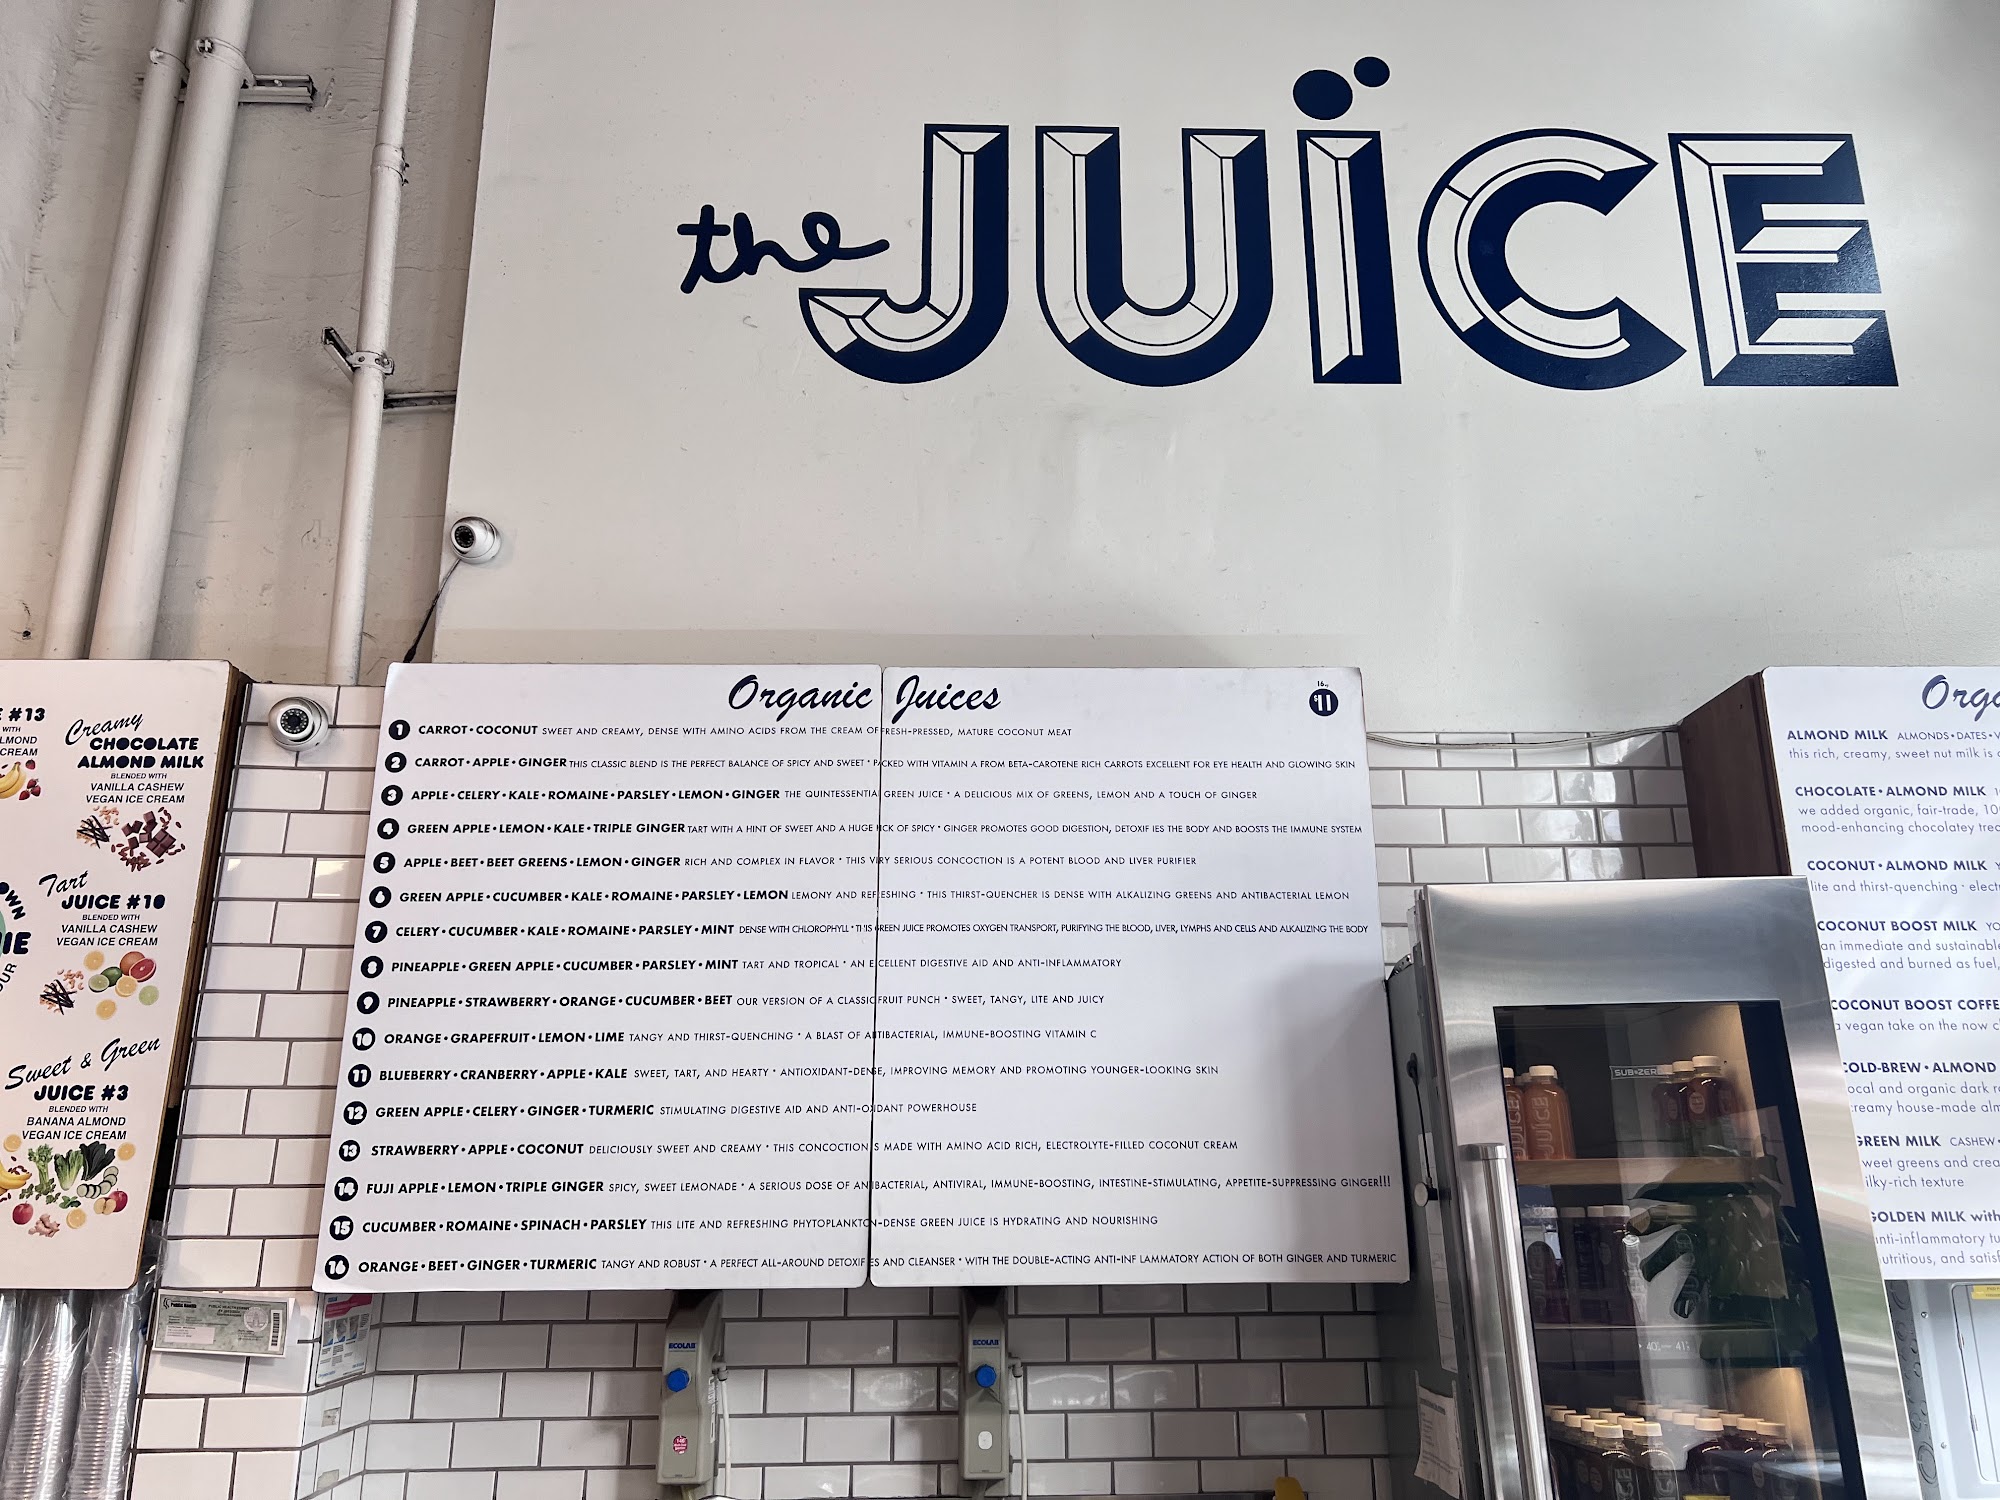 the JUiCE
Organic Juices
16oz
$11
1 CARROT • COCONUT SWEET AND CREAMY, DENSE WITH AMINO ACIDS FROM THE CREAM OF FRESH-PRESSED, MATURE COCONUT MEAT
2 CARROT • APPLE • GINGER THIS CLASSIC BLEND IS THE PERFECT BALANCE OF SPICY AND SWEET * PACKED WITH VITAMIN A FROM BETA-CAROTENE RICH CARROTS EXCELLENT FOR EYE HEALTH AND GLOWING SKIN
3 APPLE • CELERY • KALE • ROMAINE • PARSLEY • LEMON • GINGER THE QUINTESSENTIAL GREEN JUICE * A DELICIOUS MIX OF GREENS, LEMON AND A TOUCH OF GINGER
4 GREEN APPLE • LEMON • KALE • TRIPLE GINGER TART WITH A HINT OF SWEET AND A HUGE KICK OF SPICY * GINGER PROMOTES GOOD DIGESTION, DETOXIF IES THE BODY AND BOOSTS THE IMMUNE SYSTEM
5 APPLE • BEET • BEET GREENS • LEMON • GINGER RICH AND COMPLEX IN FLAVOR * THIS VERY SERIOUS CONCOCTION IS A POTENT BLOOD AND LIVER PURIFIER
6 GREEN APPLE • CUCUMBER • KALE • ROMAINE • PARSLEY • LEMON LEMONY AND REFRESHING * THIS THIRST-QUENCHER IS DENSE WITH ALKALIZING GREENS AND ANTIBACTERIAL LEMON
7 CELERY • CUCUMBER • KALE • ROMAINE • PARSLEY • MINT DENSE WITH CHLOROPHYLL * THIS GREEN JUICE PROMOTES OXYGEN TRANSPORT, PURIFYING THE BLOOD, LIVER, LYMPHS AND CELLS AND ALKALIZING THE BODY
8 PINEAPPLE • GREEN APPLE • CUCUMBER • PARSLEY • MINT TART AND TROPICAL * AN EXCELLENT DIGESTIVE AID AND ANTI-INFLAMMATORY
9 PINEAPPLE • STRAWBERRY • ORANGE • CUCUMBER • BEET OUR VERSION OF A CLASSIC FRUIT PUNCH * SWEET, TANGY, LITE AND JUICY
10 ORANGE • GRAPEFRUIT • LEMON • LIME TANGY AND THIRST-QUENCHING * A BLAST OF ANTIBACTERIAL, IMMUNE-BOOSTING VITAMIN C
11 BLUEBERRY • CRANBERRY • APPLE • KALE SWEET, TART, AND HEARTY * ANTIOXIDANT-DENSE, IMPROVING MEMORY AND PROMOTING YOUNGER-LOOKING SKIN
12 GREEN APPLE • CELERY • GINGER • TURMERIC STIMULATING DIGESTIVE AID AND ANTI-OXIDANT POWERHOUSE
13 STRAWBERRY • APPLE • COCONUT DELICIOUSLY SWEET AND CREAMY * THIS CONCOCTION IS MADE WITH AMINO ACID RICH, ELECTROLYTE-FILLED COCONUT CREAM
14 FUJI APPLE • LEMON • TRIPLE GINGER SPICY, SWEET LEMONADE * A SERIOUS DOSE OF ANTIBACTERIAL, ANTIVIRAL, IMMUNE-BOOSTING, INTESTINE-STIMULATING, APPETITE-SUPPRESSING GINGER!!!
15 CUCUMBER • ROMAINE • SPINACH • PARSLEY THIS LITE AND REFRESHING PHYTOPLANKTON-DENSE GREEN JUICE IS HYDRATING AND NOURISHING
16 ORANGE • BEET • GINGER • TURMERIC TANGY AND ROBUST * A PERFECT ALL-AROUND DETOXIFIES AND CLEANSER * WITH THE DOUBLE-ACTING ANTI-INF LAMMATORY ACTION OF BOTH GINGER AND TURMERIC
#13
WITH
ALMOND
CREAM
Creamy
CHOCOLATE
ALMOND MILK
BLENDED WITH
VANILLA CASHEW
VEGAN ICE CREAM
OWN
IE
OUR
Tart
JUICE #10
BLENDED WITH
VANILLA CASHEW
VEGAN ICE CREAM
Sweet & Green
JUICE #3
BLENDED WITH
BANANA ALMOND
VEGAN ICE CREAM
Orga
ALMOND MILK ALMONDS • DATES • V
this rich, creamy, sweet nut milk is
CHOCOLATE • ALMOND MILK
we added organic, fair-trade, 10
mood-enhancing chocolatey trea
COCONUT • ALMOND MILK Y
lite and thirst-quenching * elect
COCONUT BOOST MILK YO
an immediate and sustainable
digested and burned as fuel,
COCONUT BOOST COFFE
a vegan take on the now c
COLD-BREW • ALMOND
ocal and organic dark r
creamy house-made alm
GREEN MILK CASHEW •
weet greens and crea
ilky-rich texture
GOLDEN MILK with
nti-inflammatory tu
utritious, and satisf
SUB-ZERO
JUICE
JUICE
Public Health
ECOLAB
ECOLAB